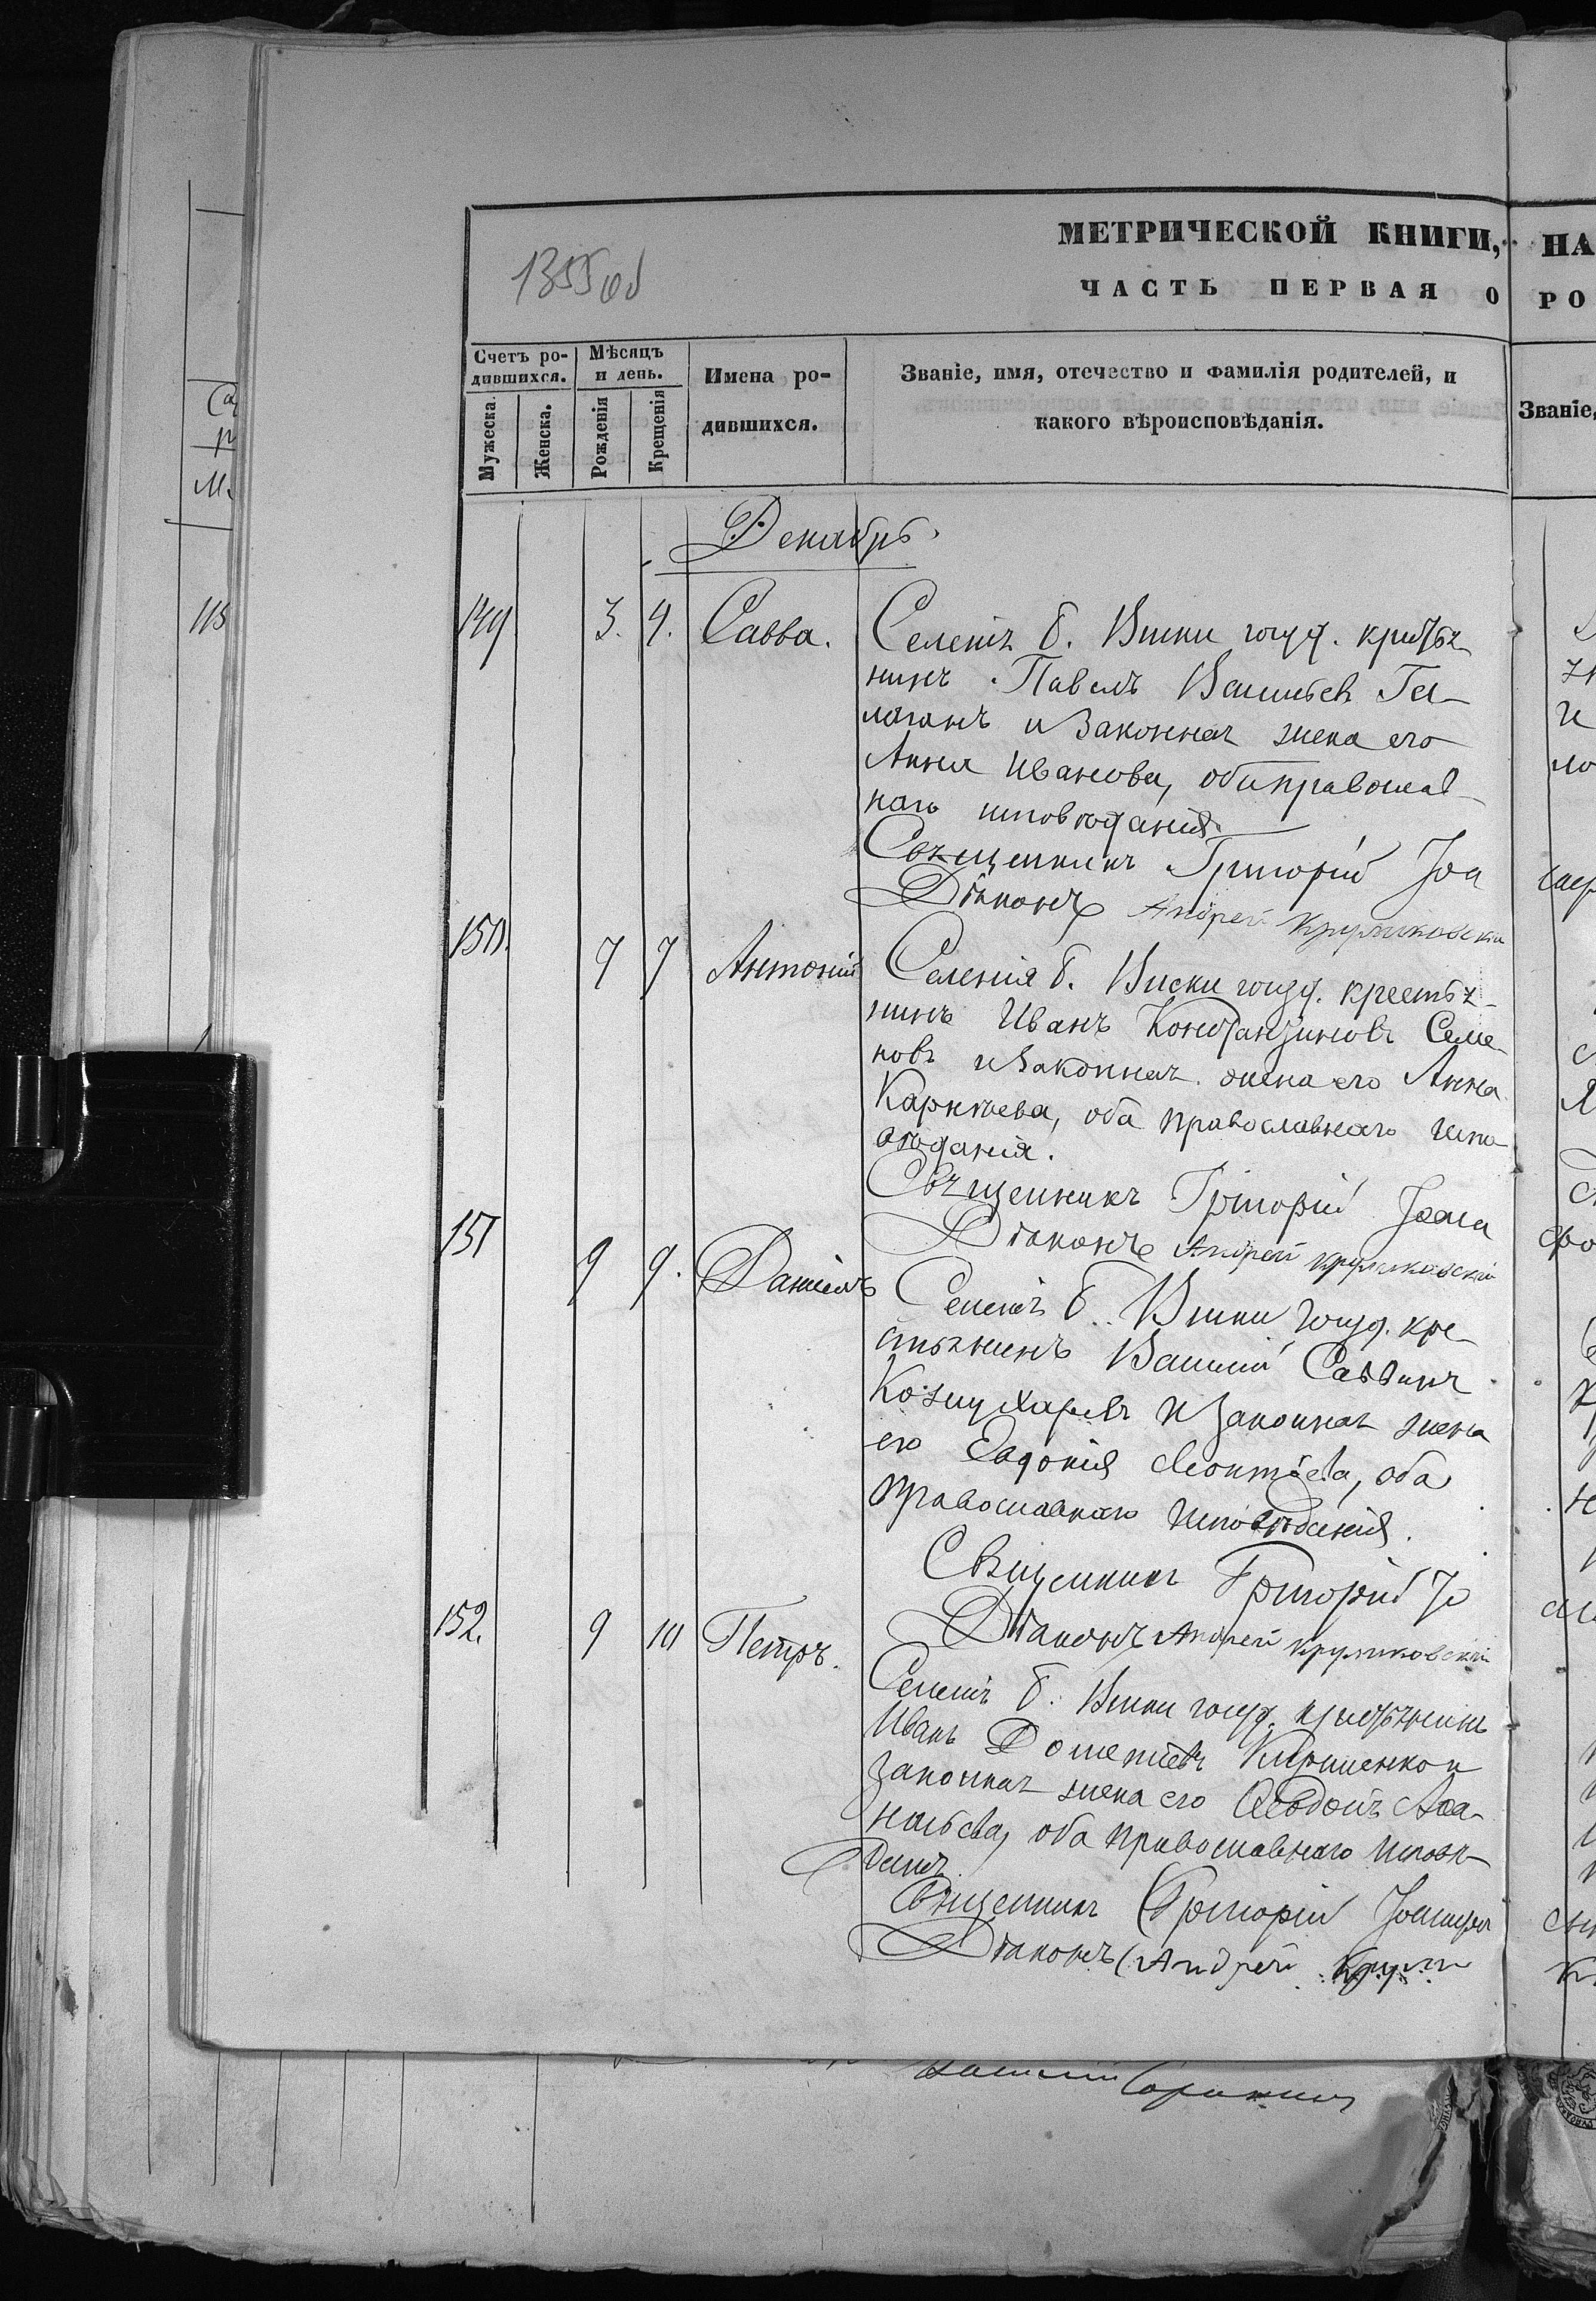 МЕТРИЧЕСКОЙ КНИГИ, НА
1355 об
ЧАСТЬ ПЕРВАЯ О РО
Счетъ ро-
дившихся.
Мужеска.
Женска.
Мѣсяцъ
и день.
Рожденія
Крещенія
Имена ро-
дившихся.
Званіе, имя, отечество и фамилія родителей, и
какого вѣроисповѣданія.
Званіе,
Декабрь.
149 3. 4. Савва.
Селенія б. Виски госуд. крестья
нинъ Павелъ Васильевъ Га-
лаганъ и Законная жена его
Анна Иванова, оба православ-
наго исповѣданія.
Священникъ Григорій
Діаконъ Андрей Круликовскій
150. 7 7 Антоній
Селенія б. Виски госуд. крестья-
нинъ Иванъ Константиновъ Семе-
новъ и Законная жена его Анна
Карнѣева, оба православнаго испо
вѣданія.
Священникъ Григорій
Діаконъ Андрей Круликовскій
151 9 9. Даніилъ
Селенія б. Виски госуд. кре-
стьянинъ Василій Саввинъ
Кожухаревъ и Законная жена
его Евдокія Леонтіева, оба
православнаго исповѣданія.
Священникъ Григорій
Діаконъ Андрей Круликовскій
152. 9 10 Петръ.
Селенія б. Виски госуд. крестьянинъ
Иванъ Дометіевъ Кириченко и
Законная жена его оба православнаго исповѣ-
Священникъ Григорій
Діаконъ Андрей
Василій